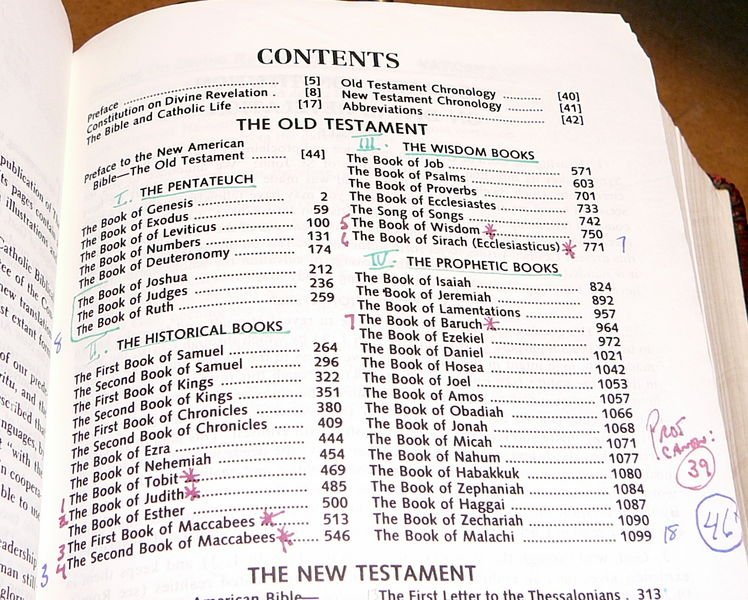 CONTENTS
Preface [5]
Constitution on Divine Revelation . [8]
The Bible and Catholic Life [17]
Old Testament Chronology [40]
New Testament Chronology [41]
Abbreviations [42]
THE OLD TESTAMENT
Preface to the New American
Bible—The Old Testament [44]
I. THE PENTATEUCH
The Book of Genesis 2
The Book of Exodus 59
The Book of of Leviticus 100
The Book of Numbers 131
The Book of Deuteronomy 174
The Book of Joshua 212
The Book of Judges 236
The Book of Ruth 259
8
II. THE HISTORICAL BOOKS
The First Book of Samuel 264
The Second Book of Samuel 296
The First Book of Kings 322
The Second Book of Kings 351
The First Book of Chronicles 380
The Second Book of Chronicles 409
The Book of Ezra 444
The Book of Nehemiah 454
1 The Book of Tobit * 469
2 The Book of Judith * 485
The Book of Esther 500
3 The First Book of Maccabees * 513
4 The Second Book of Maccabees * 546
3
III. THE WISDOM BOOKS
The Book of Job 571
The Book of Psalms 603
The Book of Proverbs 701
The Book of Ecclesiastes 733
The Song of Songs 742
5 The Book of Wisdom * 750
6 The Book of Sirach (Ecclesiasticus) * 771 7
IV. THE PROPHETIC BOOKS
The Book of Isaiah 824
The Book of Jeremiah 892
The Book of Lamentations 957
7 The Book of Baruch * 964
The Book of Ezekiel 972
The Book of Daniel 1021
The Book of Hosea 1042
The Book of Joel 1053
The Book of Amos 1057
The Book of Obadiah 1066
The Book of Jonah 1068
The Book of Micah 1071
The Book of Nahum 1077
The Book of Habakkuk 1080
The Book of Zephaniah 1084
The Book of Haggai 1087
The Book of Zechariah 1090
The Book of Malachi 1099 18
PROT
CANON:
39
46
THE NEW TESTAMENT
American Bible—
The First Letter to the Thessalonians . 313
publication of
its pages contain
illustrations and
Catholic
of the
new translation
extant
of our
and the
that
"with the
in
able to